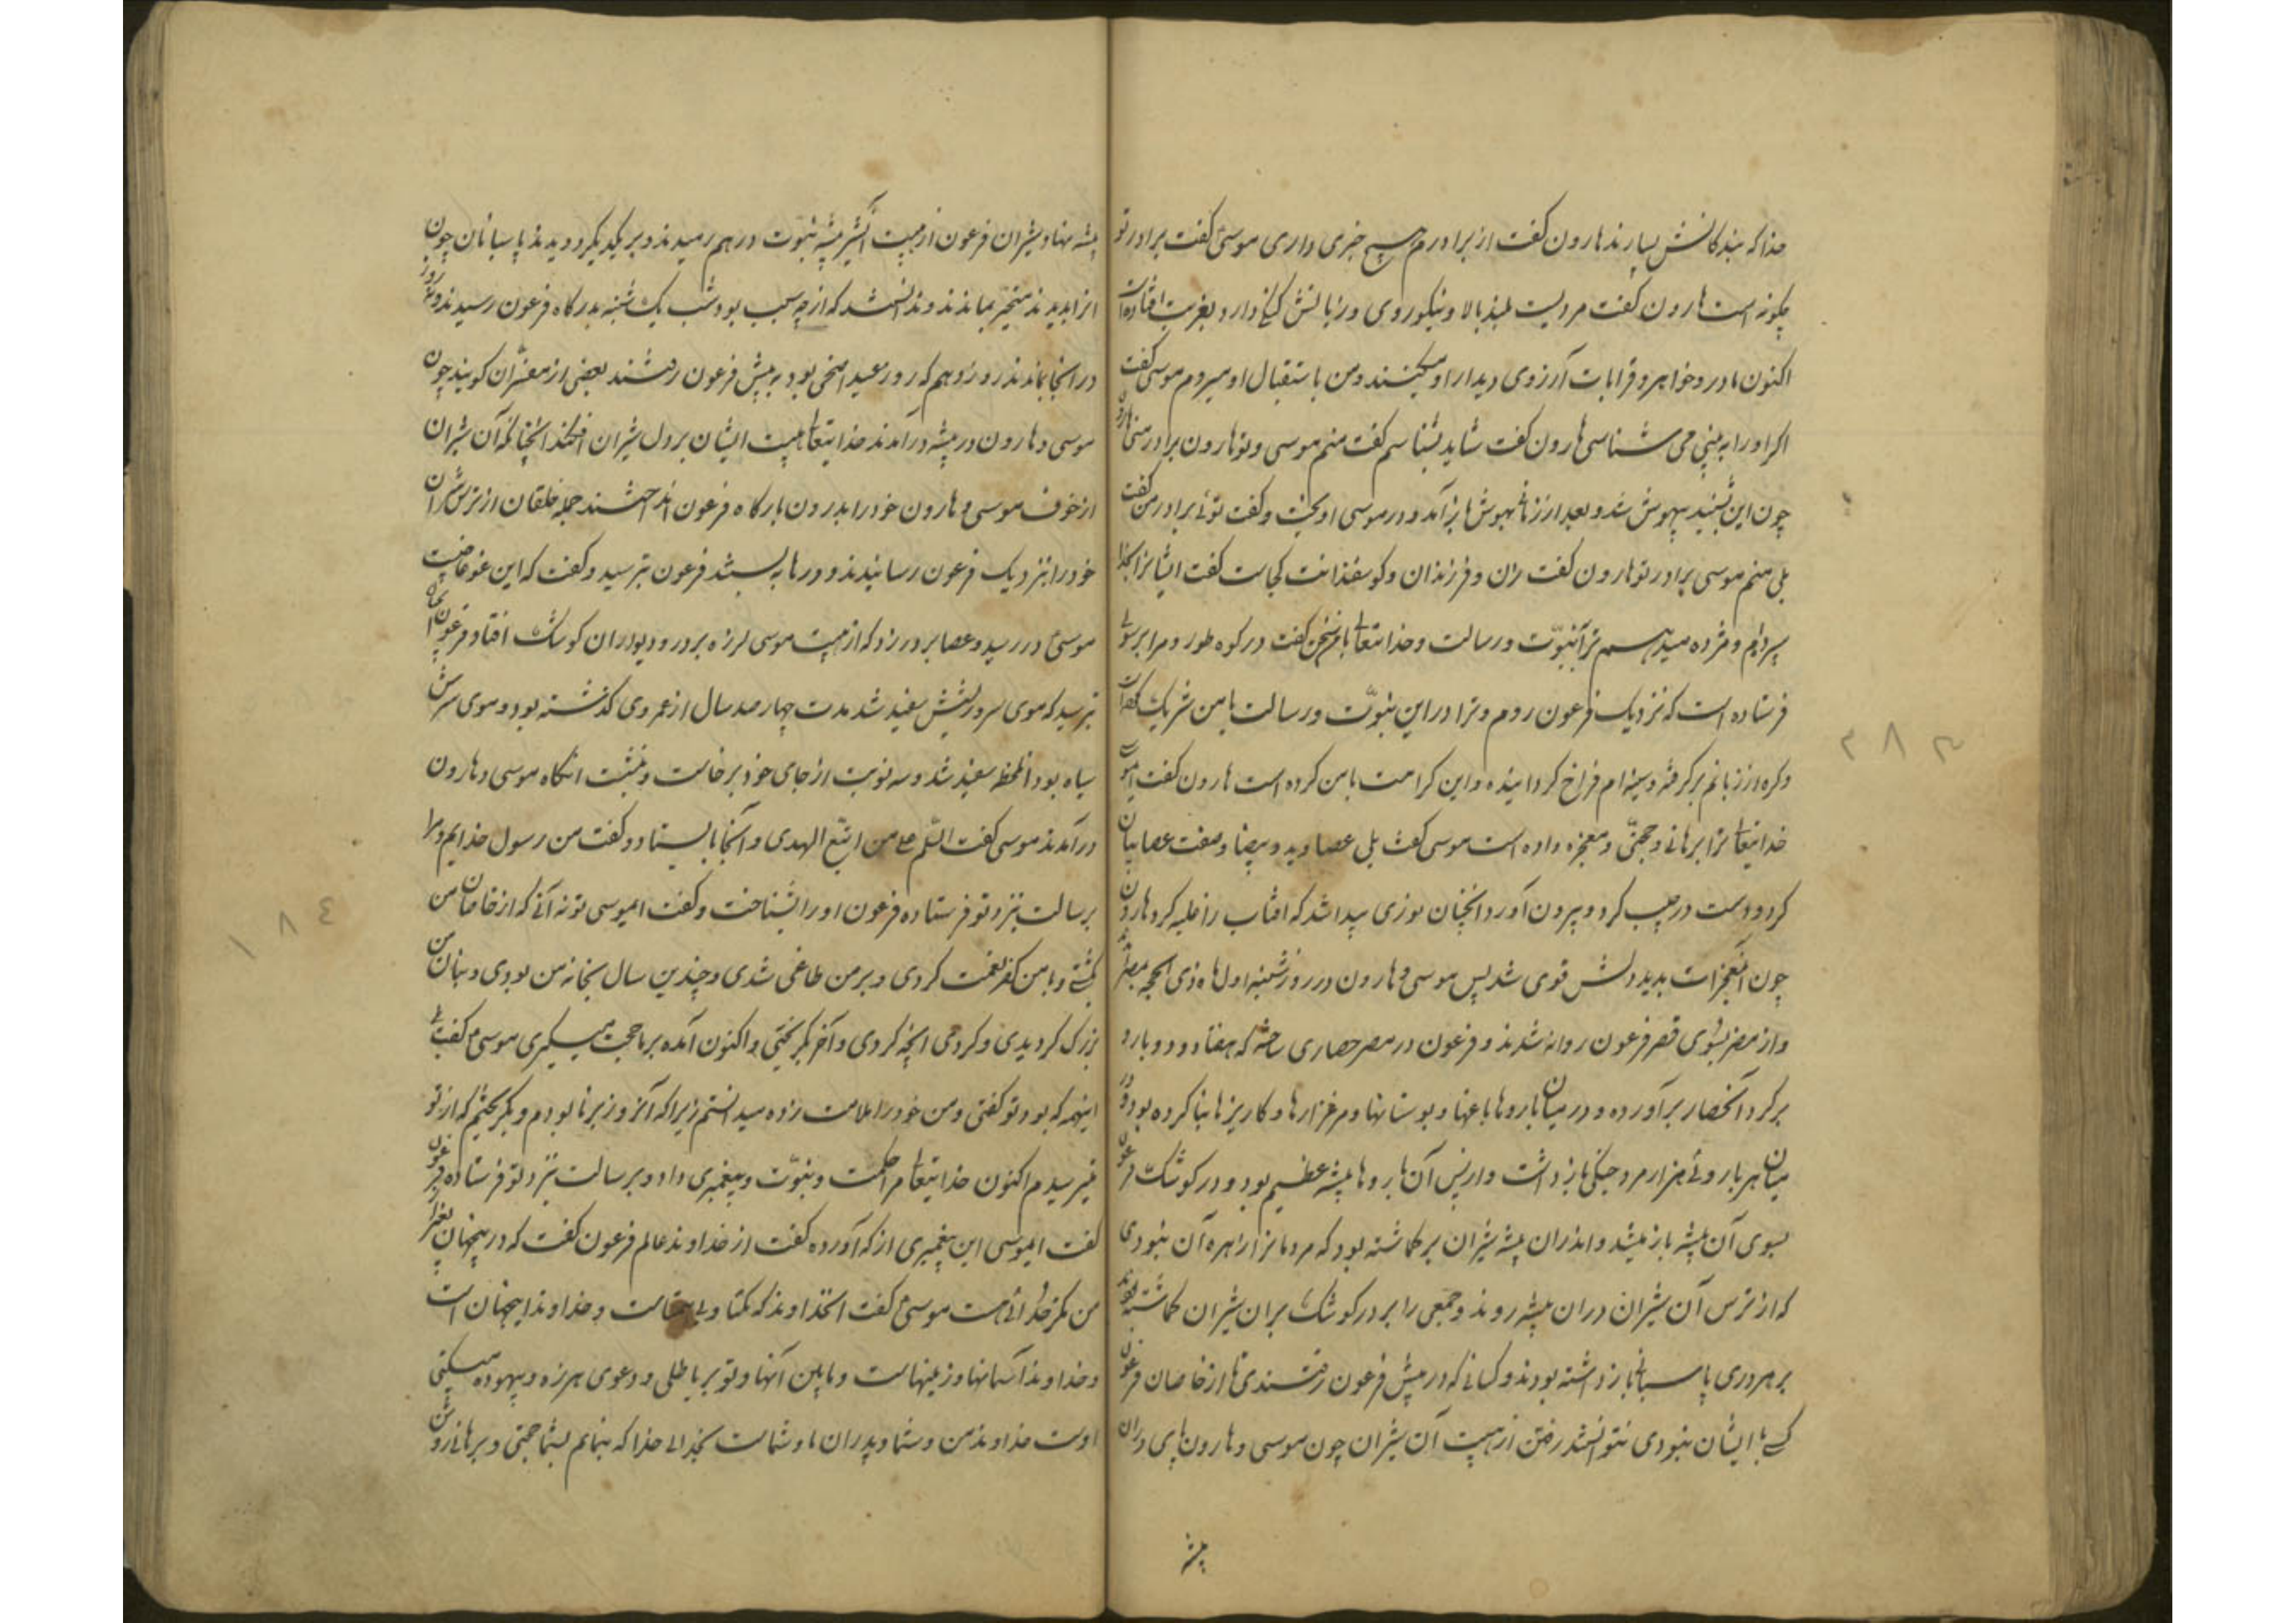 خدا که بندگانش بسپارند هارون کفت از برادرم هیچ خبری داری موسی کفت برادر تو
چکونه است هارون کفت مردیست بلند بالا و نیکوروی و زبانش دارد بغربت افتاده است
اکنون مادر و خواهر و قرابات آرزوی دیدار او میکنند و من باستقبال او میروم موسی کفت
اکر او را به بینی می شناسی هارون کفت شاید بشناسم کفت منم موسی و تو هارون برادر منی هارون
چون این بشنید بیهوش شد و بعد از زمانی بهوش باز آمد و در موسی اویخت و کفت توئی برادر من کفت
بلی منم موسی برادر تو هارون کفت زن و فرزندان و کوسفندانت کجاست کفت ایشانرا بخدا
سپردم و مژده میدهم ترا نبوّت و رسالت و خدایتعالی با من سخن کفت در کوه طور و مرا برسولی
فرستاده است که نزدیک فرعون روم و ترا در این نبوّت و رسالت با من شریک کرد است
و کره از زبانم برکرفته و سینه ام فراخ کردانیده و این کرامت با من کرده است هارون کفت ای موسی
خدایتعالی ترا برهانی و حجتّی و معجزه داده است موسی کفت بلی عصا و ید و بیضا و صفت عصا بیان
کرد و دست در جیب کرد و بیرون آورد انچنان نوری پیدا شد که افتاب را غلبه کرد هارون
چون آنمعجزات بدید دلش قوی شد پس موسی و هارون در روز شنبه اول ماه ذی الحجه بمصر
و از مصر بسوی قصر فرعون روانه شدند و فرعون در مصر حصاری ساخته که هفتاد و دو بارو
برکرد آنحصار برآورده و در میان باروها باغها و بوستانها و مرغزارها و کاریزها بنا کرده بود و در
میان هر باروئی هزار مرد جنکی باز داشت و از پس آن باروها بیشه عظیم بود و در کوشک فرعون
بسوی آن بیشه باز میشد و اندران بیشه شیران برکماشته بود که مردمانرا راه آن نبودی
که از ترس آن شیران دران بیشه روند و جمعی را بر در کوشک بران شیران کماشته بودند
بر هر دری پاسبانی باز داشته بودند و کسانی که در پیش فرعون رفتندی تا از خاصان فرعون
کسی با ایشان نبودی نتوانستند رفتن از هیبت آن شیران چون موسی و هارون پای دران
بیشه
بیشه نهاد شیران فرعون از هیبت آن شیر بیشه نبوّت در هم رمیدند و بر یکدیکر دویدند پاسبانان چون
انرا بدیدند متحیّر بماندند و ندانستند که از چه سبب بود شب یک شنبه بدرکاه فرعون رسیدند و ده روز
در انجا بماندند روز دهم که روز عید اضحی بود به پیش فرعون رفتند بعضی از مفسّران کویند چون
موسی و هارون در بیشه درآمدند خدایتعالی هیبت ایشان بر دل شیران افکند انچنانکه آن شیران
از خوف موسی و هارون خود را بدرون بارکاه فرعون انداختند جمله خلقان از ترس شیران
خود را بنزدیک فرعون رسانیدند و درها به بستند فرعون بترسید و کفت که این غوغا چیست
موسی در رسید و عصا بر در زد که از هیبت موسی لرزه بر در و دیوار ان کوشک افتاد و فرعون
بترسید که موی سر و ریشش سفید شد مدت چهارصد سال از عمر وی کذشته بود و موی سرش
سیاه بود انلحظه سفید شد و سه نوبت از جای خود برخاست و بنشت انکاه موسی و هارون
درآمدند موسی کفت السّلم علی من اتبّع الهدی و آنجا بایستاد و کفت من رسول خدایم و مرا
برسالت بنزد تو فرستاده فرعون او را بشناخت و کفت ایموسی تو نه آنی که از خاصان من
بکشتی و با من کفر نعمت کردی و بر من طاغی شدی و چندین سال بخانه من بودی و بنان من
بزرک کردیدی و کردی انچه کردی و آخر بکریختی و اکنون آمده بر ما حجت میکیری موسی کفت بلی
اینهمه که بود تو کفتی و من خود را ملامت زده میدانستم زیرا که آنروز برنا بودم و بکریختم که از تو
میترسیدم اکنون خدایتعالی مرا حکمت و نبوّت و پیغمبری داد و برسالت بنزد تو فرستاده فرعون
کفت ایموسی این پیغمبری از که آورده کفت از خداوند عالم فرعون کفت که در اینجهان بغیر از
من مکر خدائی هست موسی کفت انخداوند که یکتا و بی همتاست و خداوند اینجهان است
و خداوند آسمانها و زمینهاست و مابین آنها و تو بر باطلی و دعوی هرزه و بیهوده میکنی
اوست خداوند من و شما و پدران ما و شماست بخدائی خدا که بنمایم بشما حجتی و برهانی روشن